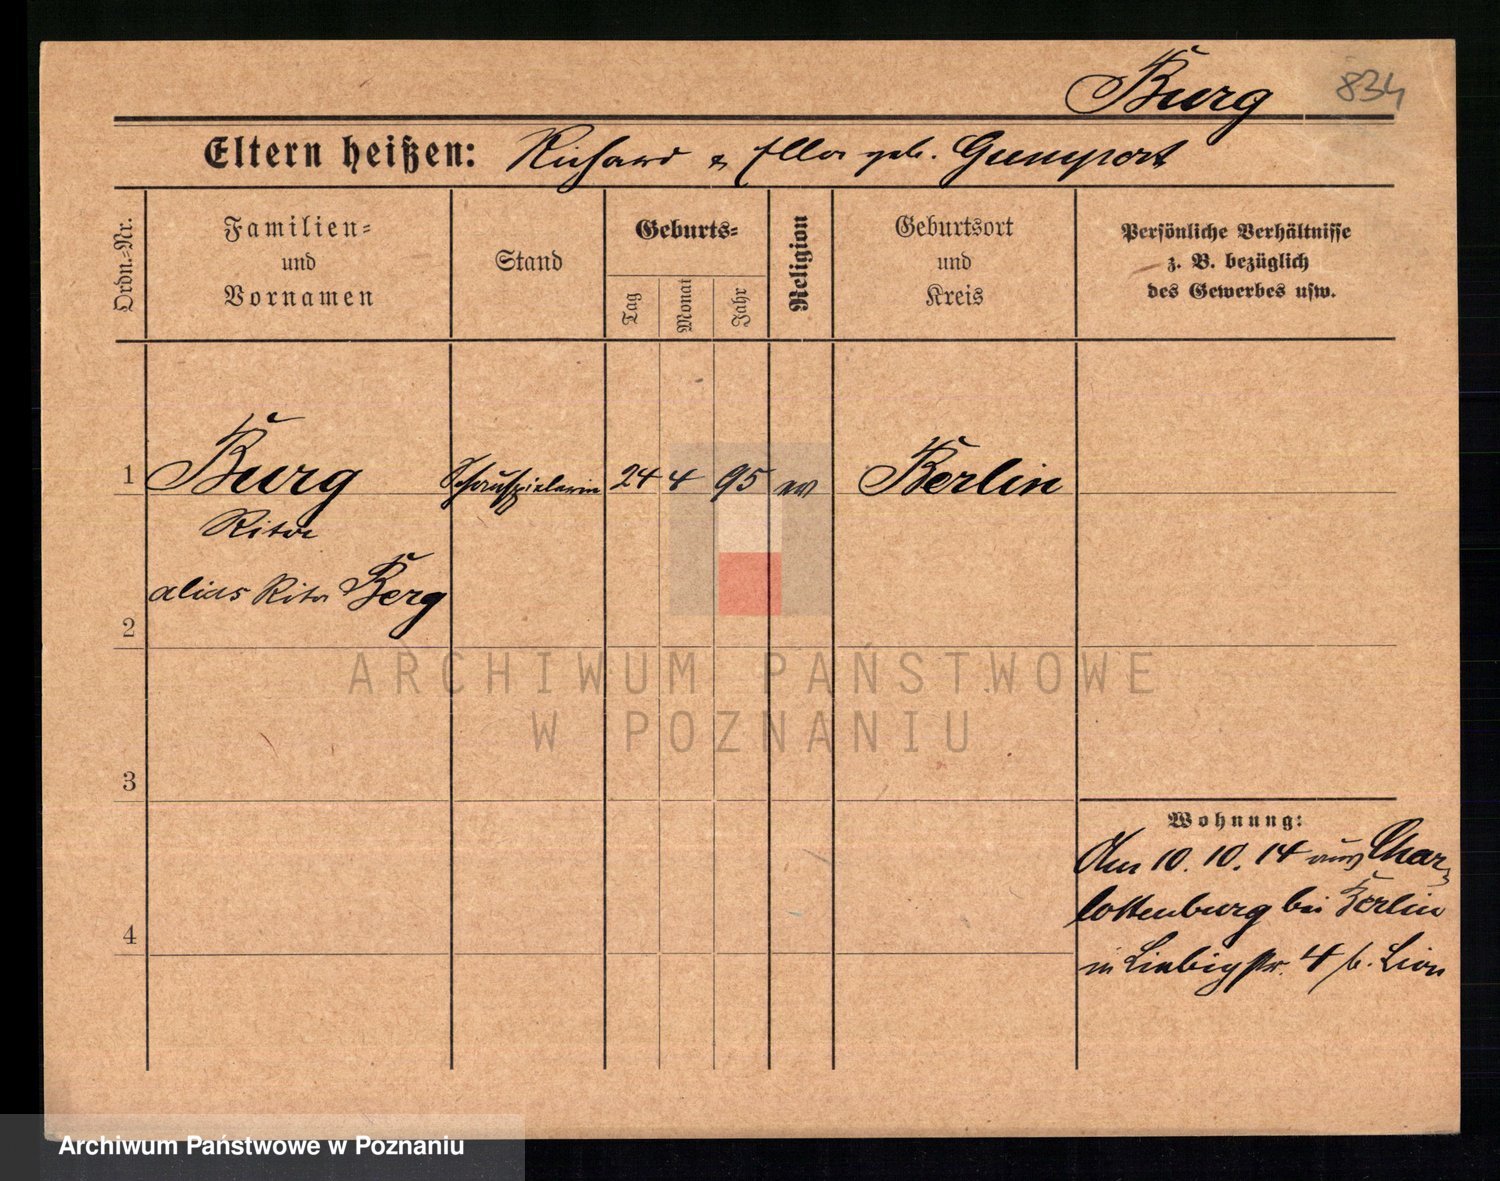 Burg 834
Eltern heißen: Richard & Ella geb. Gumpert
Ordn.-Nr.
Familien-
und
Vornamen
Stand
Geburts-
Tag
Monat
Jahr
Religion
Geburtsort
und
Kreis
Persönliche Verhältnisse
z. B. bezüglich
des Gewerbes usw.
1 Burg Schauspielerin 24 4 95 ev Berlin
Rita
alias Rita Berg
2
ARCHIWUM PAŃSTWOWE
W POZNANIU
3
Wohnung:
Am 10. 10. 14 aus Char-
lottenburg bei Berlin
4
in Liebigstr. 4 b. Lion
Archiwum Państwowe w Poznaniu